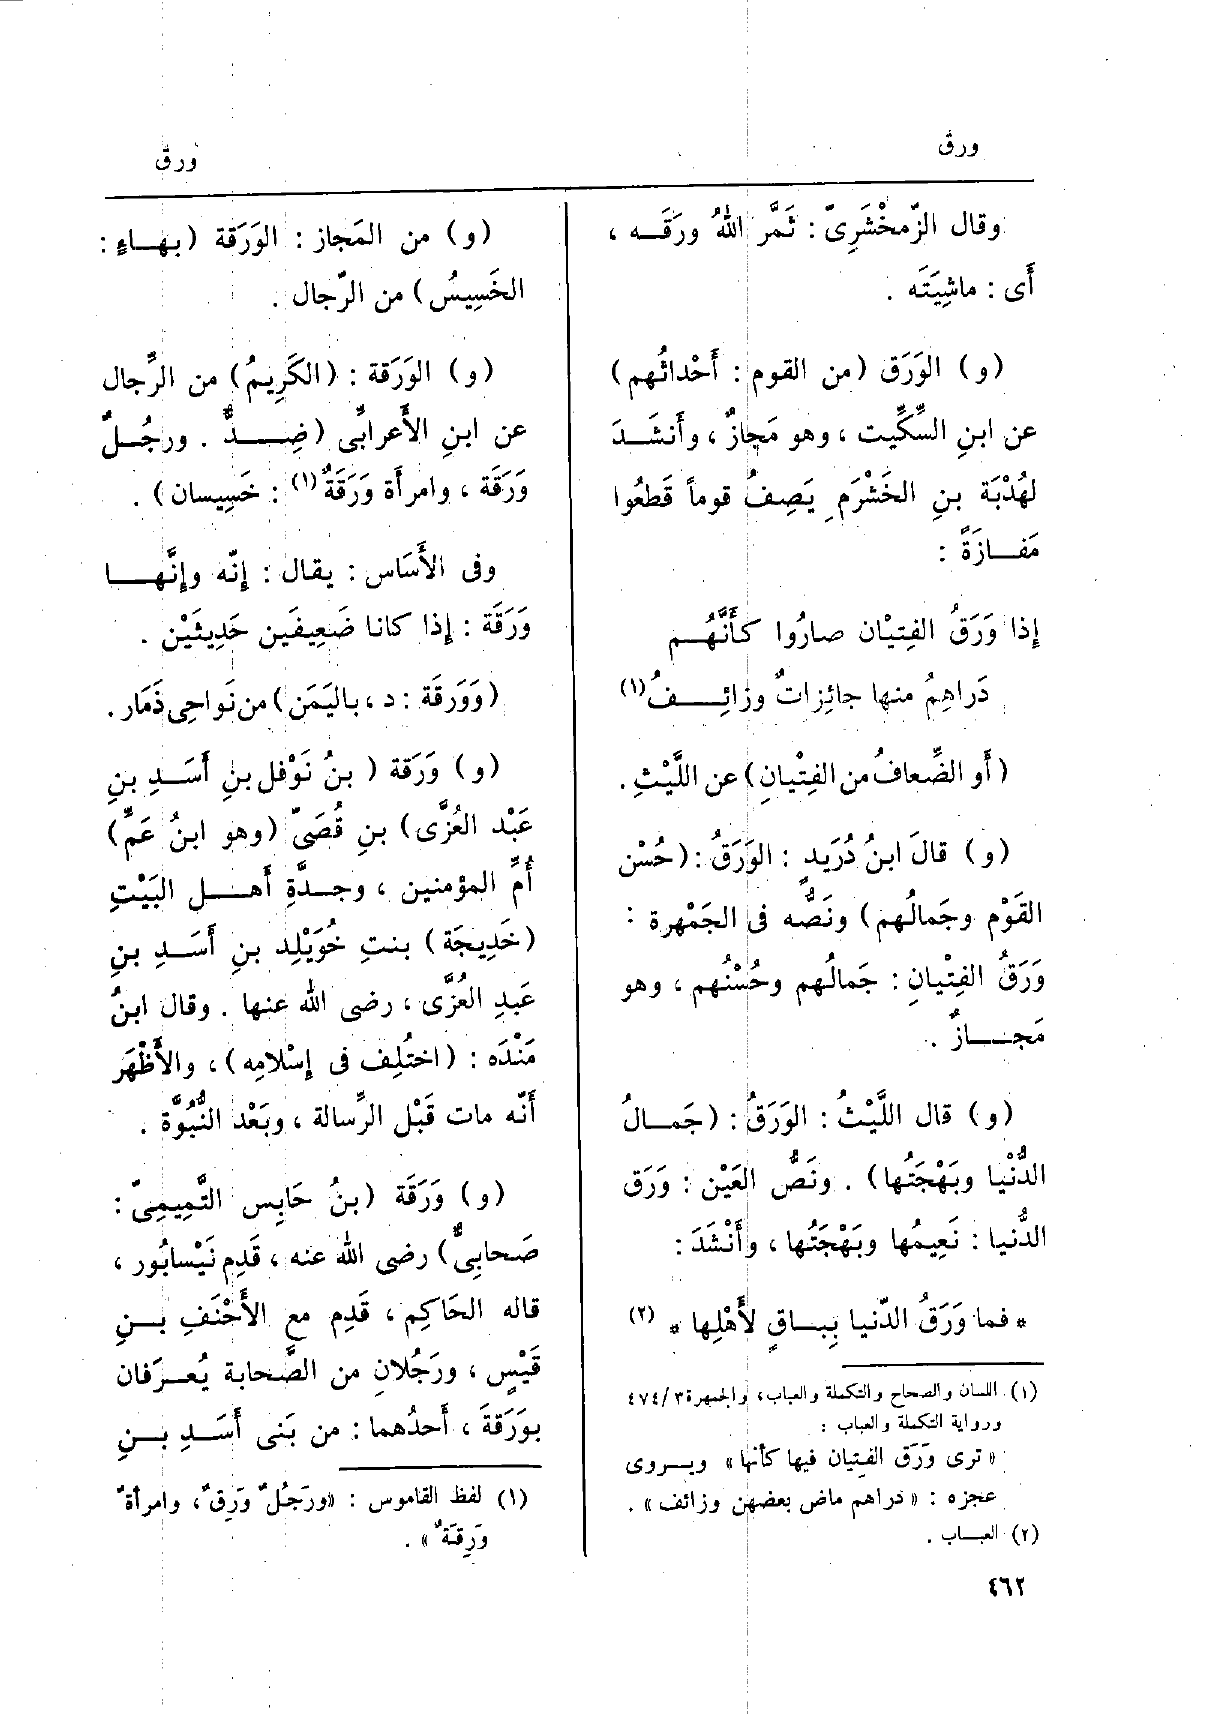 ورق
ورق
وقال الزّمخْشَرِىّ : ثَمَّر اللهُ ورَقَـــه ،
أَى : ماشِيَتَه .
(و) الوَرَق (من القوم : أَحْداثُهم)
عن ابنِ السِّكِّيت ، وهو مَجازٌ ، وأَنشَــدَ
لهُدْبَة بنِ الخَشْرَم يَصِفُ قوماً قَطعُوا
مَفــازَةً :
إذا وَرَقُ الفِتيْان صارُوا كأَنَّهُــم
دَراهِمُ منها جائِزاتٌ وزائِــــفُ(١)
(أَو الضِّعافُ من الفِتْيانِ) عن اللَّيْثِ .
(و) قالَ ابنُ دُرَيدٍ : الوَرَقُ : (حُسْن
القَوْم وجَمالُهم) ونَصُّه فى الجَمْهرة :
وَرَقُ الفِتيانِ : جَمالُهم وحُسْنُهم ، وهو
مَجــازٌ .
(و) قال اللَّيْثُ : الوَرَقُ : (جَمــالُ
الدُّنْيا وبَهْجَتُها) . ونَصُّ العَيْن : وَرَق
الدُّنيا : نَعِيمُها وبَهْجَتُها ، وأَنْشَدَ :
* فما وَرَقُ الدّنيا بِبــاقٍ لأَهْلِها * (٢)
(١) اللسان والصحاح والتكملة والعباب، والجمهرة ٣/ ٤٧٤
ورواية التكملة والعباب :
« ترى وَرَق الفتيان فيها كأنها » ويــروى
عجزه : « دراهم ماض بعضهن وزائف » .
(٢) العبــاب .
(و) من المَجاز : الوَرَقة (بهــاءٍ :
الخَسِيسُ) من الرِّجال .
(و) الوَرَقة : (الكَرِيمُ) من الرِّجال
عن ابنِ الأَعرابِّى (ضِــــدٌّ . ورجُــلٌ
وَرَقَة ، وامرأَة وَرَقَةٌ(١) : خَسِيسان) .
وفى الأَسَاس : يقال : إِنّه وإِنَّهــــا
وَرَقَة : إذا كانا ضَعِيفَين حَدِيثَيْن .
(وَوَرقَة : د ، باليَمَن) من نَواحِى ذَمَار .
(و) وَرَقة (بنُ نَوْفل بنِ أَسَــدِ بنِ
عَبْد العُزَّى) بنِ قُصَىّ (وهو ابنُ عَمِّ)
أُمِّ المؤمنين ، وجــدَّةِ أَهــــل البَيْتِ
(خَدِيجَة) بنتِ خُوَيْلِد بنِ أَسَــدِ بنِ
عَبدِ العُزَّى ، رضى الله عنها . وقال ابنُ
مَنْدَه : (اختُلِف فى إِسْلامِه) ، والأَظْهَر
أَنّه مات قَبْل الرِّسالة ، وبَعْد النُّبُوَّة .
(و) وَرَقَة (بنُ حَابِس التَّمِيمِىّ :
صَحابِىٌّ) رضى الله عنه ، قَدِم نَيْسابُور ،
قاله الحَاكِم ، قَدِم مع الأَحْنَفِ بــنِ
قَيْسٍ ، ورَجُلانِ من الصَّحابة يُعــرَفان
بوَرَقَةَ ، أَحدُهما : من بَنى أَسَــدِ بــنِ
(١) لفظ القاموس : « ورَجُلٌ وَرِقٌ ، وامرأةٌ
وَرِقَةٌ » .
٤٦٢